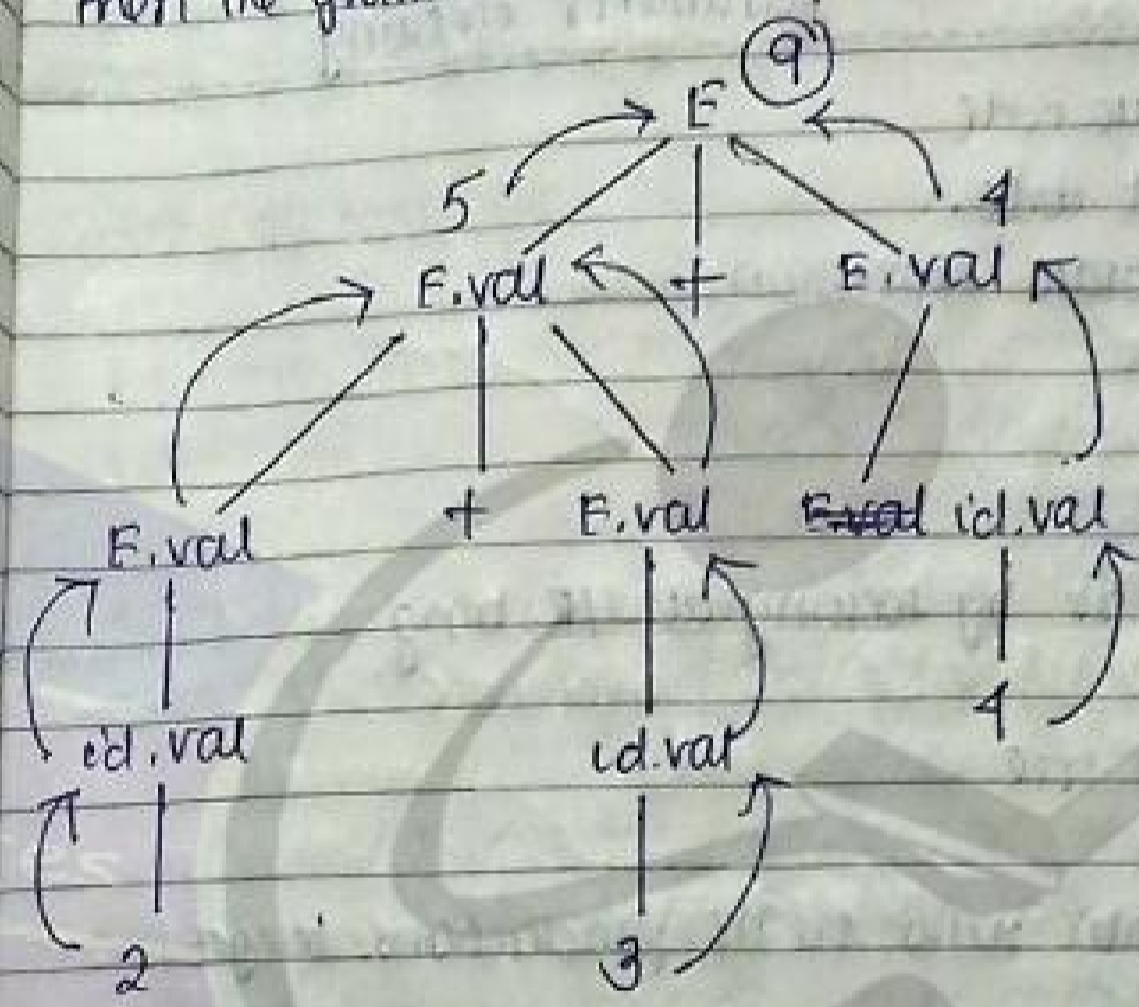 then the
9
E
5 4
E.val + E.val
E.val + E.val id.val
id.val id.val 4
2 3